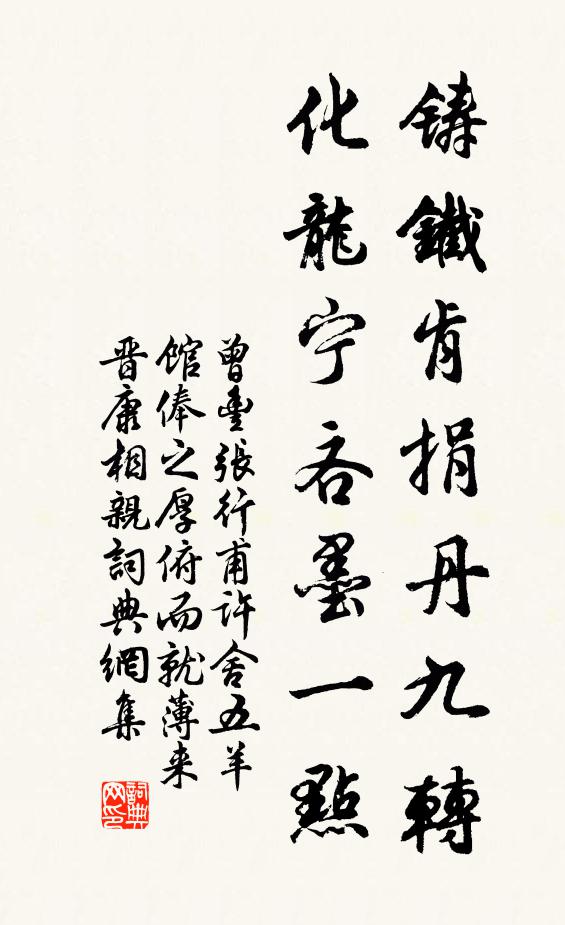 鑄鐵肯捐丹九轉
化龍宁吝墨一點
曾豊張行甫許舍五羊
館俸之厚俯而就薄来
晋康相親詞典網集
詞典
网印